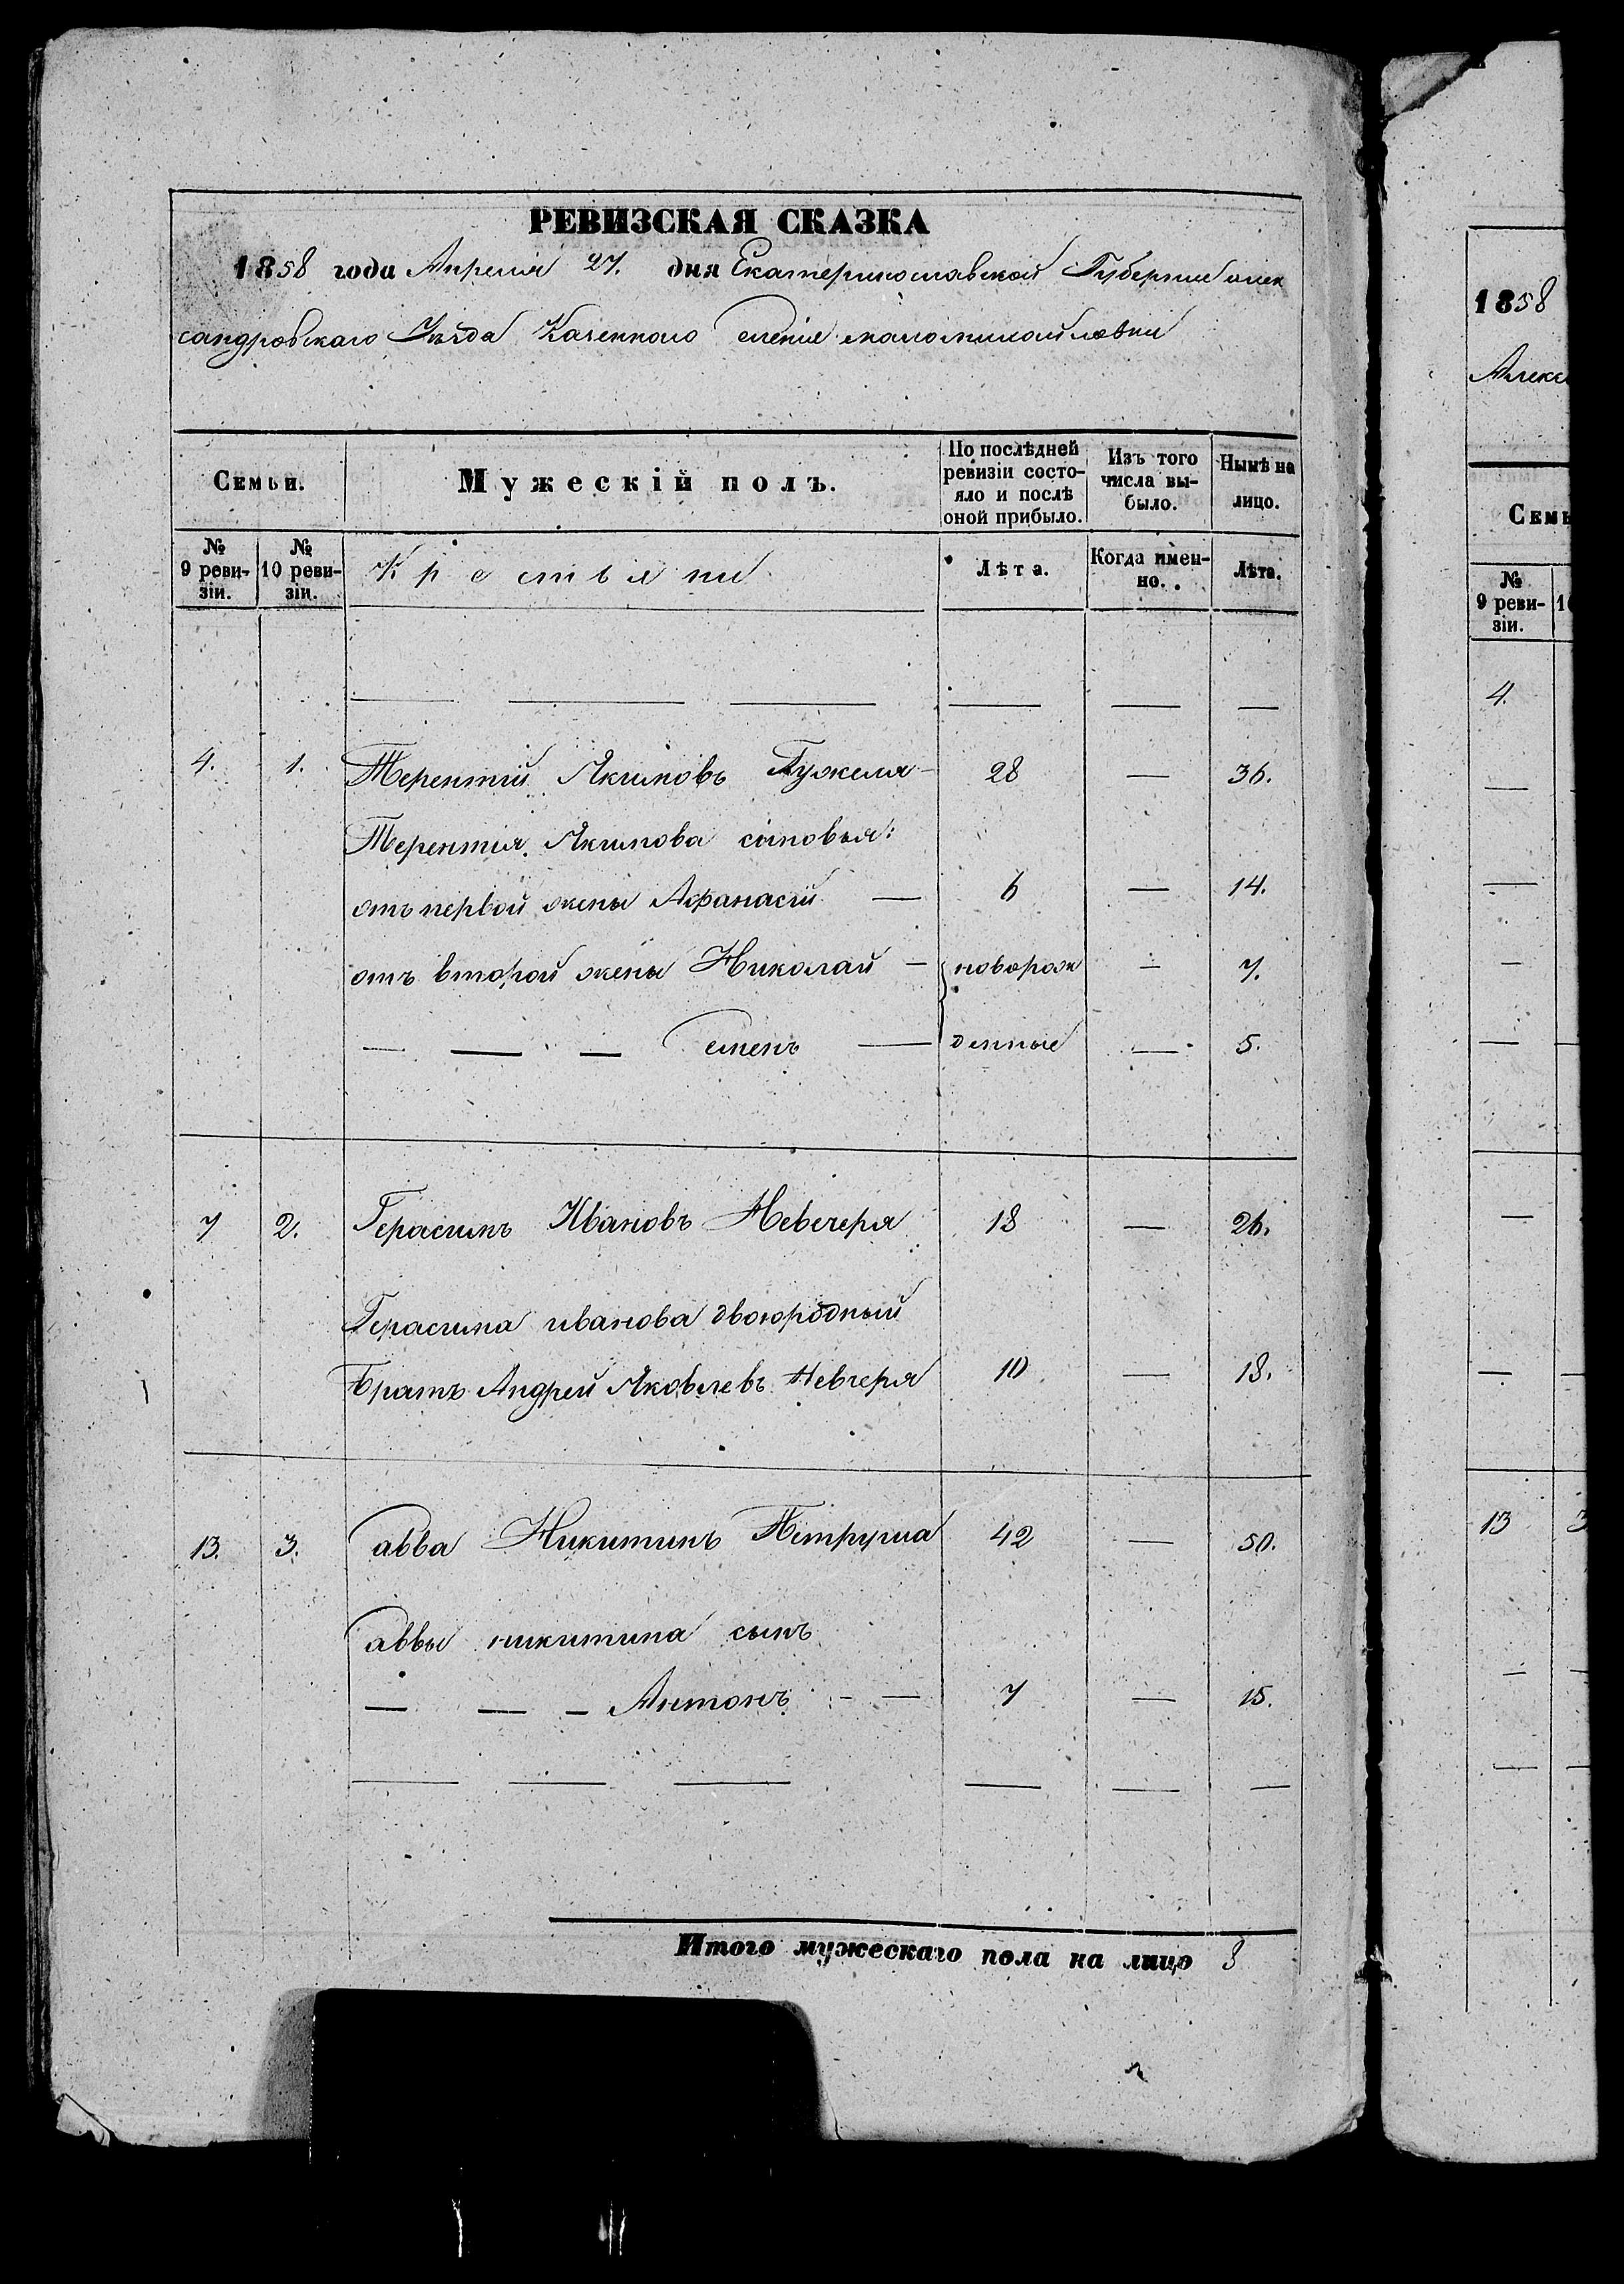 РЕВИЗСКАЯ СКАЗКА
1858 года Апреля 27. дня Екатеринославской Губернии алек
сандровскаго Уѣзда Казеннаго селения маломихайловки
Семьи.
Мужескій полъ.
По послѣдней ревизіи состо-яло и послѣ оной прибыло.
Изъ того числа вы-было.
Нынѣ на лицо.
№ 9 реви-зіи.
№ 10 реви-зіи.
Крестьяни
Лѣта.
Когда имен-но.
Лѣта.
4. 1. Терентий Якимовъ Гужеля — 28 — 36.
Терентия Якимова сыновья:
отъ первой жены Афанасий — 6 — 14.
отъ второй жены Николай — новорож — 7.
— — — Семенъ — денные — 5.
7 2. Герасимъ Ивановъ Невечеря 18 — 26.
Герасима иванова двоюродный
братъ Андрей Яковлевъ Невчеря 10 — 18.
13. 3. Савва Никитинъ Петруша 42 — 50.
Саввы никитина сынъ
— — — Антонъ — — 7 — 15.
Итого мужескаго пола на лицо 8
1858
Алекс
Семь
№ 9 реви-зіи.
4.
13 3